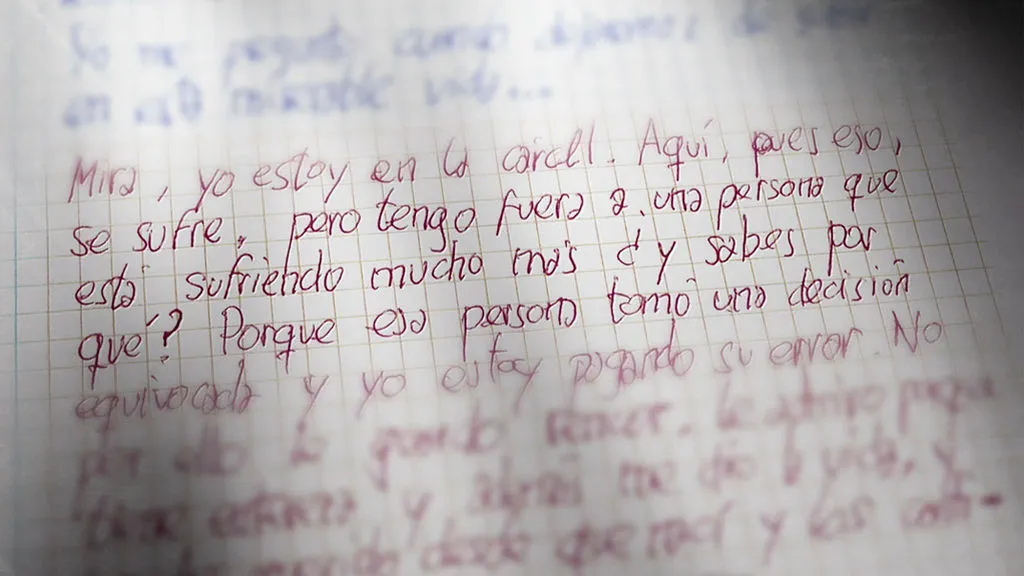 Yo me pregunto
en esta miserable vida...
Mira, yo estoy en la carcell. Aquí, pues eso,
se sufre, pero tengo fuera a una persona que
está sufriendo mucho más ¿y sabes por
qué? Porque esa persona tomó una decisión
equivocada y yo estoy pagando su error. No
por ello la guardo rencor. La admiro porque
y me dio la vida, y
desde que nací y los